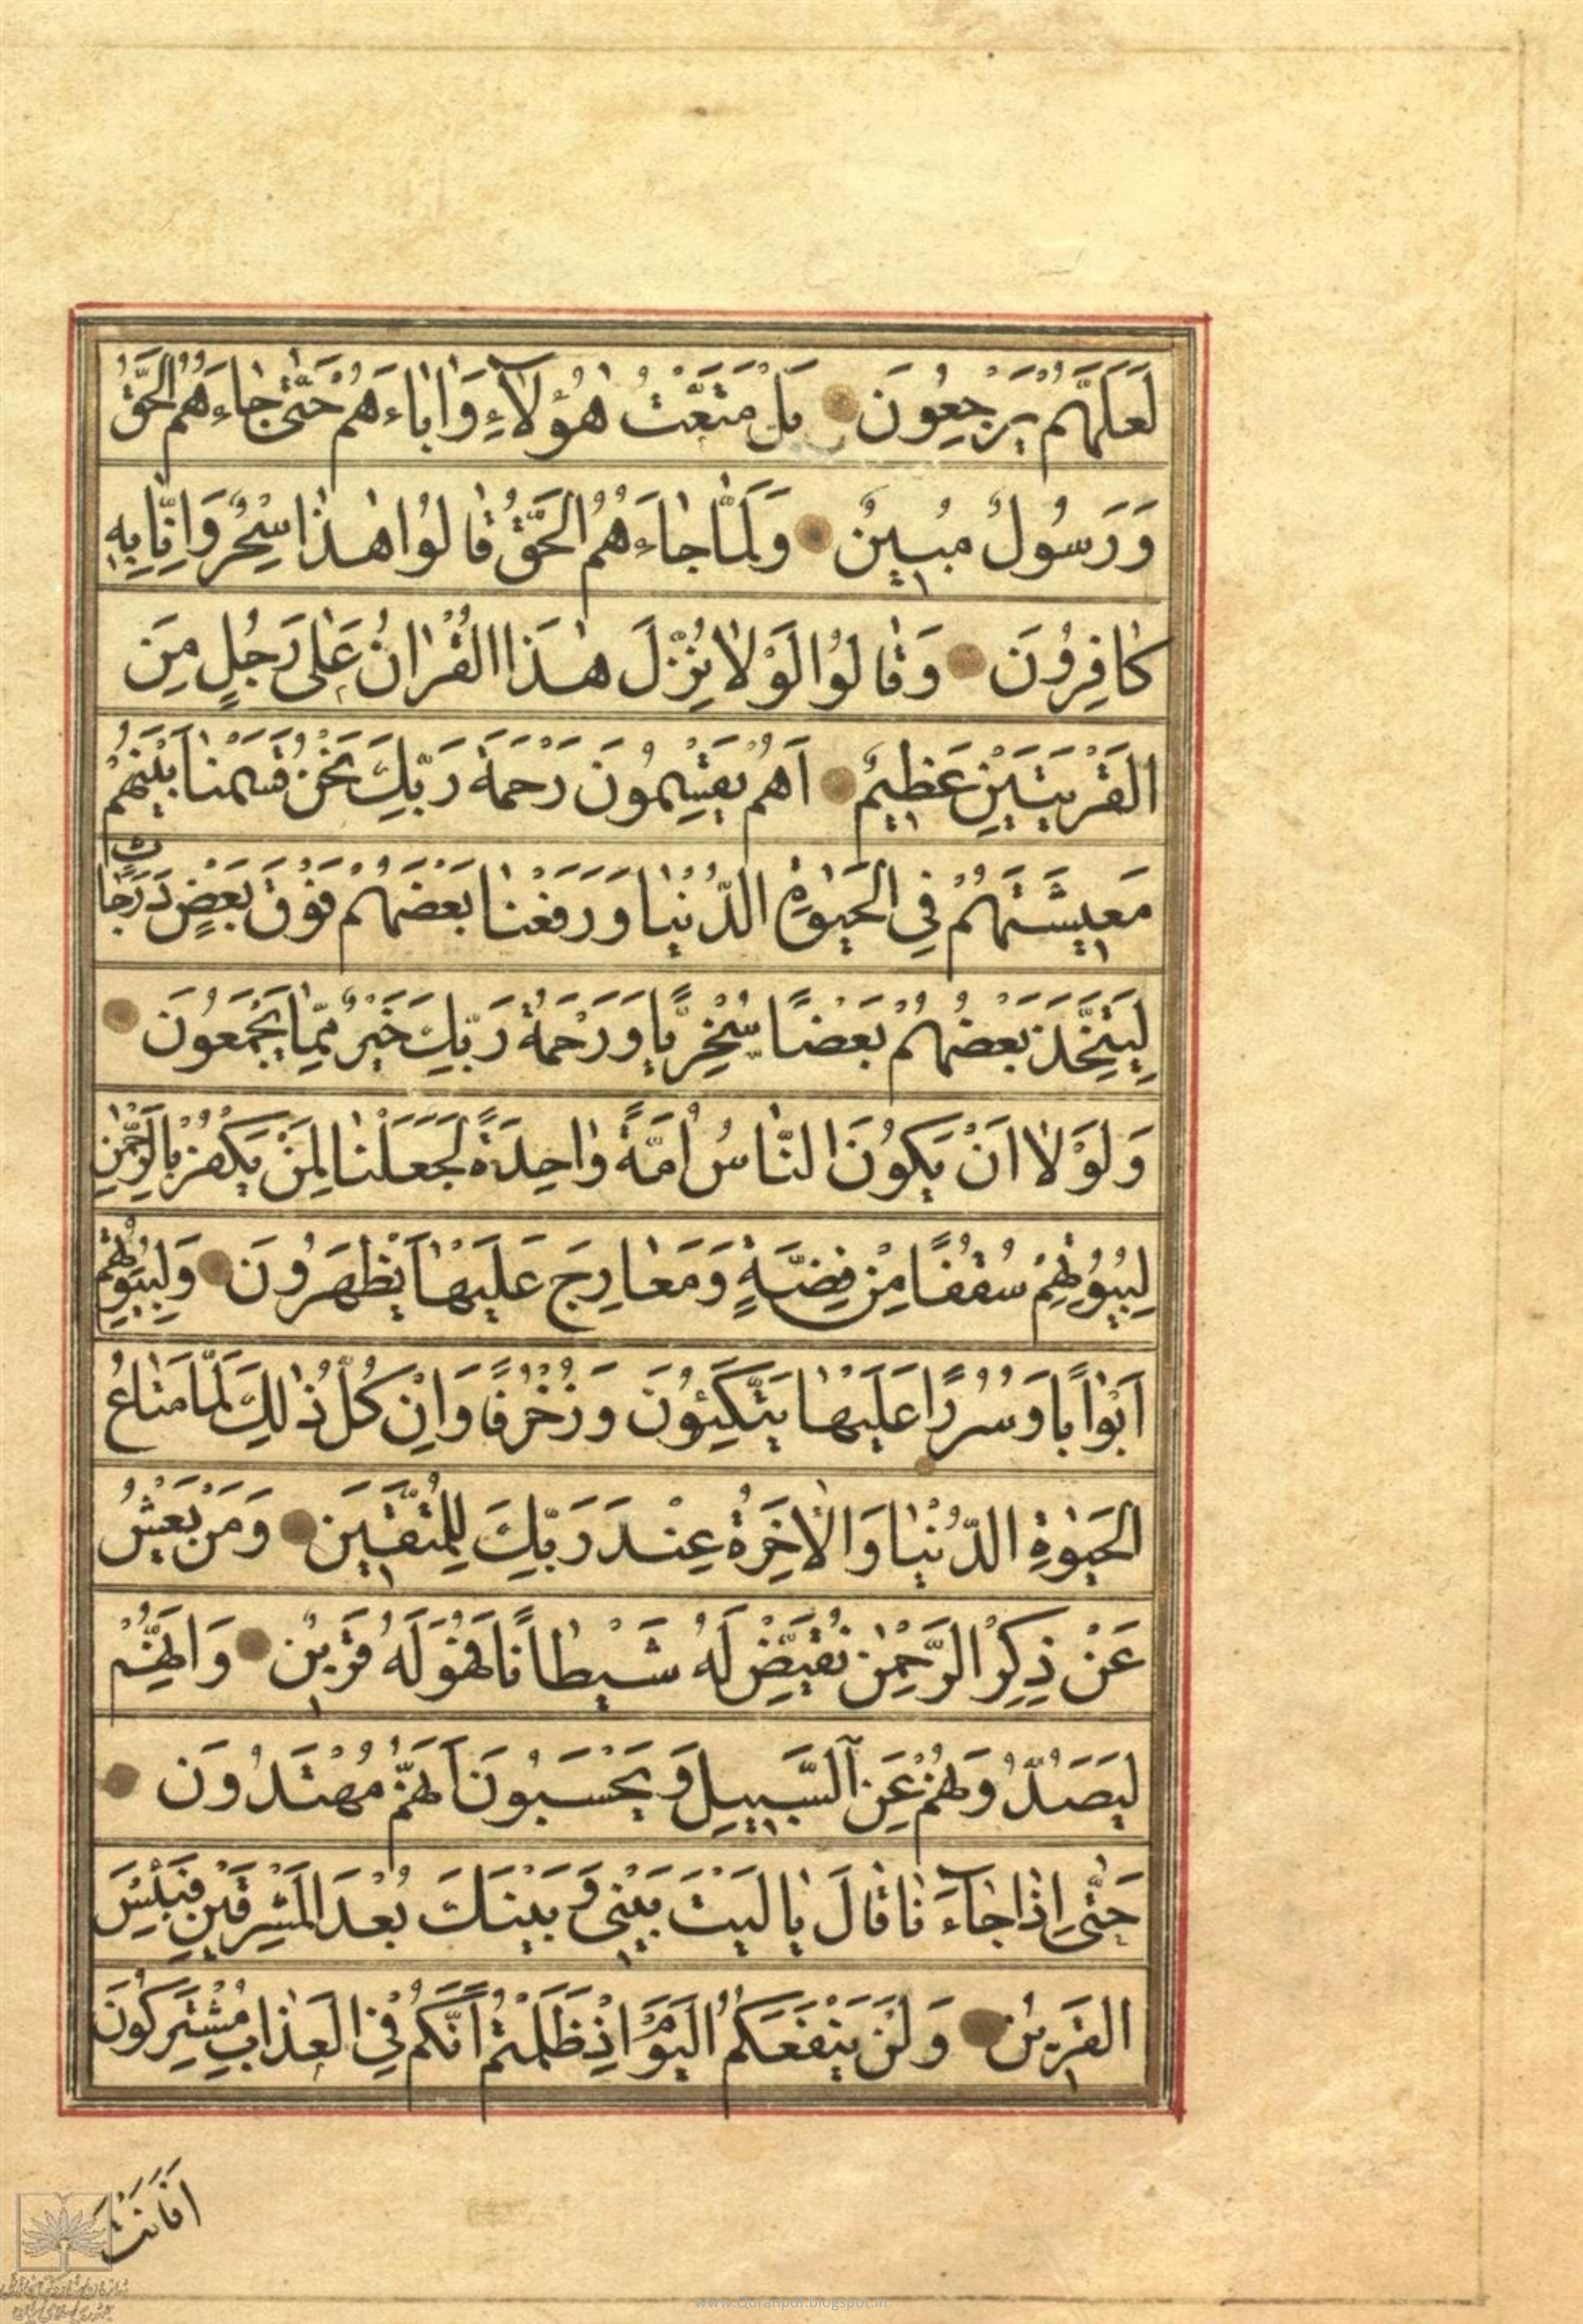 لَعَلَّهُمْ يَرْجِعُونَ بَلْ مَتَّعْتُ هٰؤُلَاءِ وَاٰبَاءَهُمْ حَتّٰى جَاءَهُمُ الْحَقُّ
وَرَسُولٌ مُبِينٌ وَلَمَّا جَاءَهُمُ الْحَقُّ قَالُوا هٰذَا سِحْرٌ وَاِنَّا بِهِ
كَافِرُونَ وَقَالُوا لَوْلَا نُزِّلَ هٰذَا الْقُرْاٰنُ عَلٰى رَجُلٍ مِنَ
الْقَرْيَتَيْنِ عَظِيمٌ اَهُمْ يَقْسِمُونَ رَحْمَةَ رَبِّكَ نَحْنُ قَسَمْنَا بَيْنَهُمْ
مَعِيشَتَهُمْ فِى الْحَيٰوةِ الدُّنْيَا وَرَفَعْنَا بَعْضَهُمْ فَوْقَ بَعْضٍ دَرَجَاتٍ
لِيَتَّخِذَ بَعْضُهُمْ بَعْضًا سُخْرِيًّا وَرَحْمَةُ رَبِّكَ خَيْرٌ مِمَّا يَجْمَعُونَ
وَلَوْلَا اَنْ يَكُونَ النَّاسُ اُمَّةً وَاحِدَةً لَجَعَلْنَا لِمَنْ يَكْفُرُ بِالرَّحْمٰنِ
لِبُيُوتِهِمْ سُقُفًا مِنْ فِضَّةٍ وَمَعَارِجَ عَلَيْهَا يَظْهَرُونَ وَلِبُيُوتِهِمْ
اَبْوَابًا وَسُرُرًا عَلَيْهَا يَتَّكِئُونَ وَزُخْرُفًا وَاِنْ كُلُّ ذٰلِكَ لَمَّا مَتَاعُ
الْحَيٰوةِ الدُّنْيَا وَالْاٰخِرَةُ عِنْدَ رَبِّكَ لِلْمُتَّقِينَ وَمَنْ يَعْشُ
عَنْ ذِكْرِ الرَّحْمٰنِ نُقَيِّضْ لَهُ شَيْطَانًا فَهُوَ لَهُ قَرِينٌ وَاِنَّهُمْ
لَيَصُدُّونَهُمْ عَنِ السَّبِيلِ وَيَحْسَبُونَ اَنَّهُمْ مُهْتَدُونَ
حَتّٰى اِذَا جَاءَنَا قَالَ يَا لَيْتَ بَيْنِى وَبَيْنَكَ بُعْدَ الْمَشْرِقَيْنِ فَبِئْسَ
الْقَرِينُ وَلَنْ يَنْفَعَكُمُ الْيَوْمَ اِذْ ظَلَمْتُمْ اَنَّكُمْ فِى الْعَذَابِ مُشْتَرِكُونَ
اَفَاَنْتَ
www.Quranpdf.blogspot.in